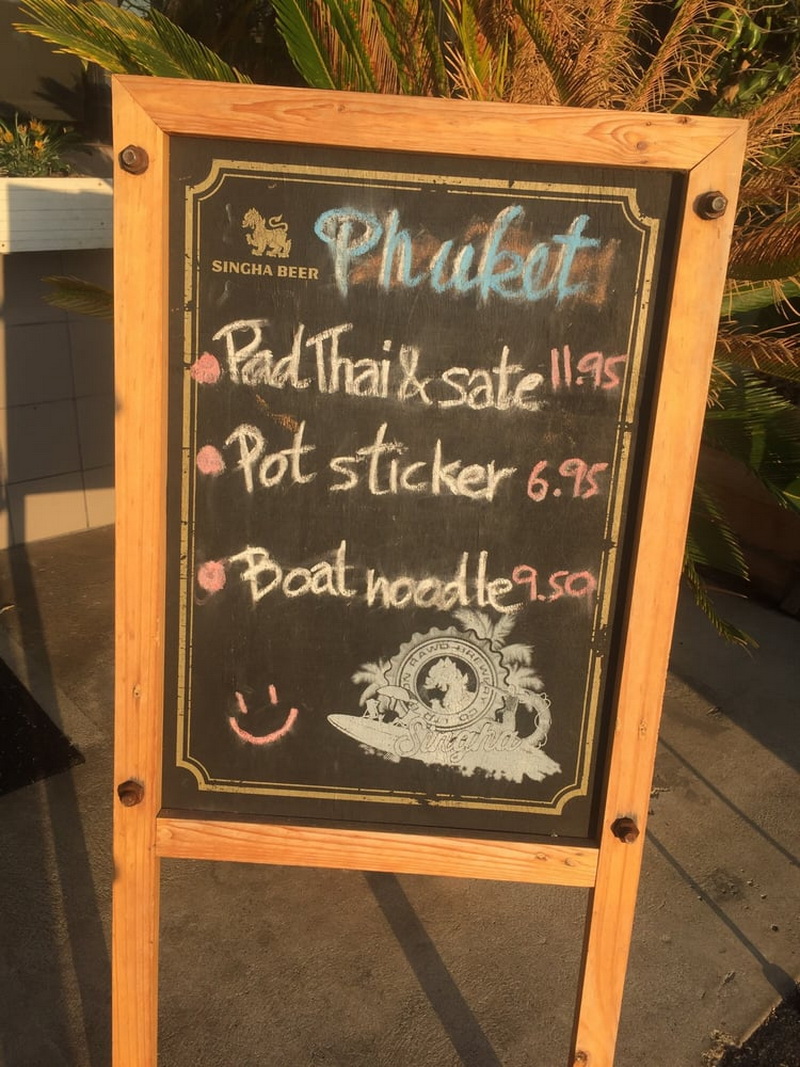 SINGHA BEER
Phuket
Pad Thai & sate 11.95
Pot sticker 6.95
Boat noodle 9.50
RAWD BREWERY CO. LTD
Singha